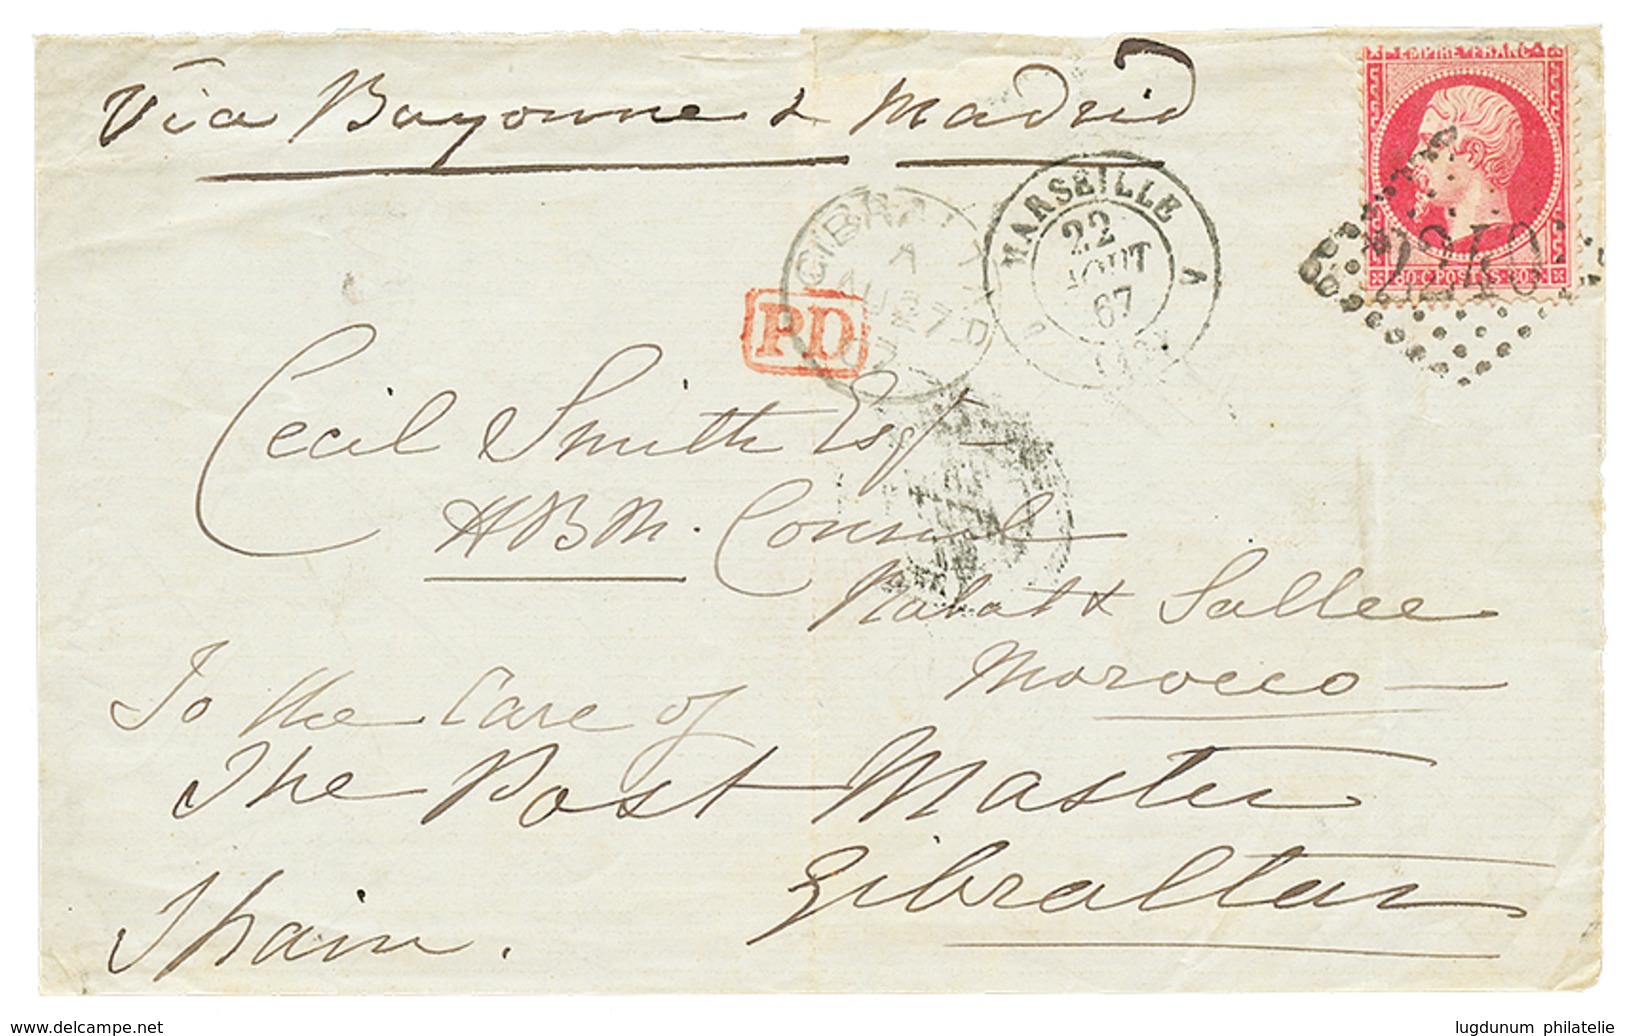 Via Bayonne & Madrid
EMPIRE FRANC
80 C POSTES 80
2240
MARSEILLE
22
AOUT
67
GIBRALTAR
A
AU 27
67
PD
Cecil Smith Esqr
H B M. Consul
Rabat & Sallee
Morocco
To the Care of
The Post Master
Gibraltar
Spain.
www.delcampe.net
lugdunum philatelie